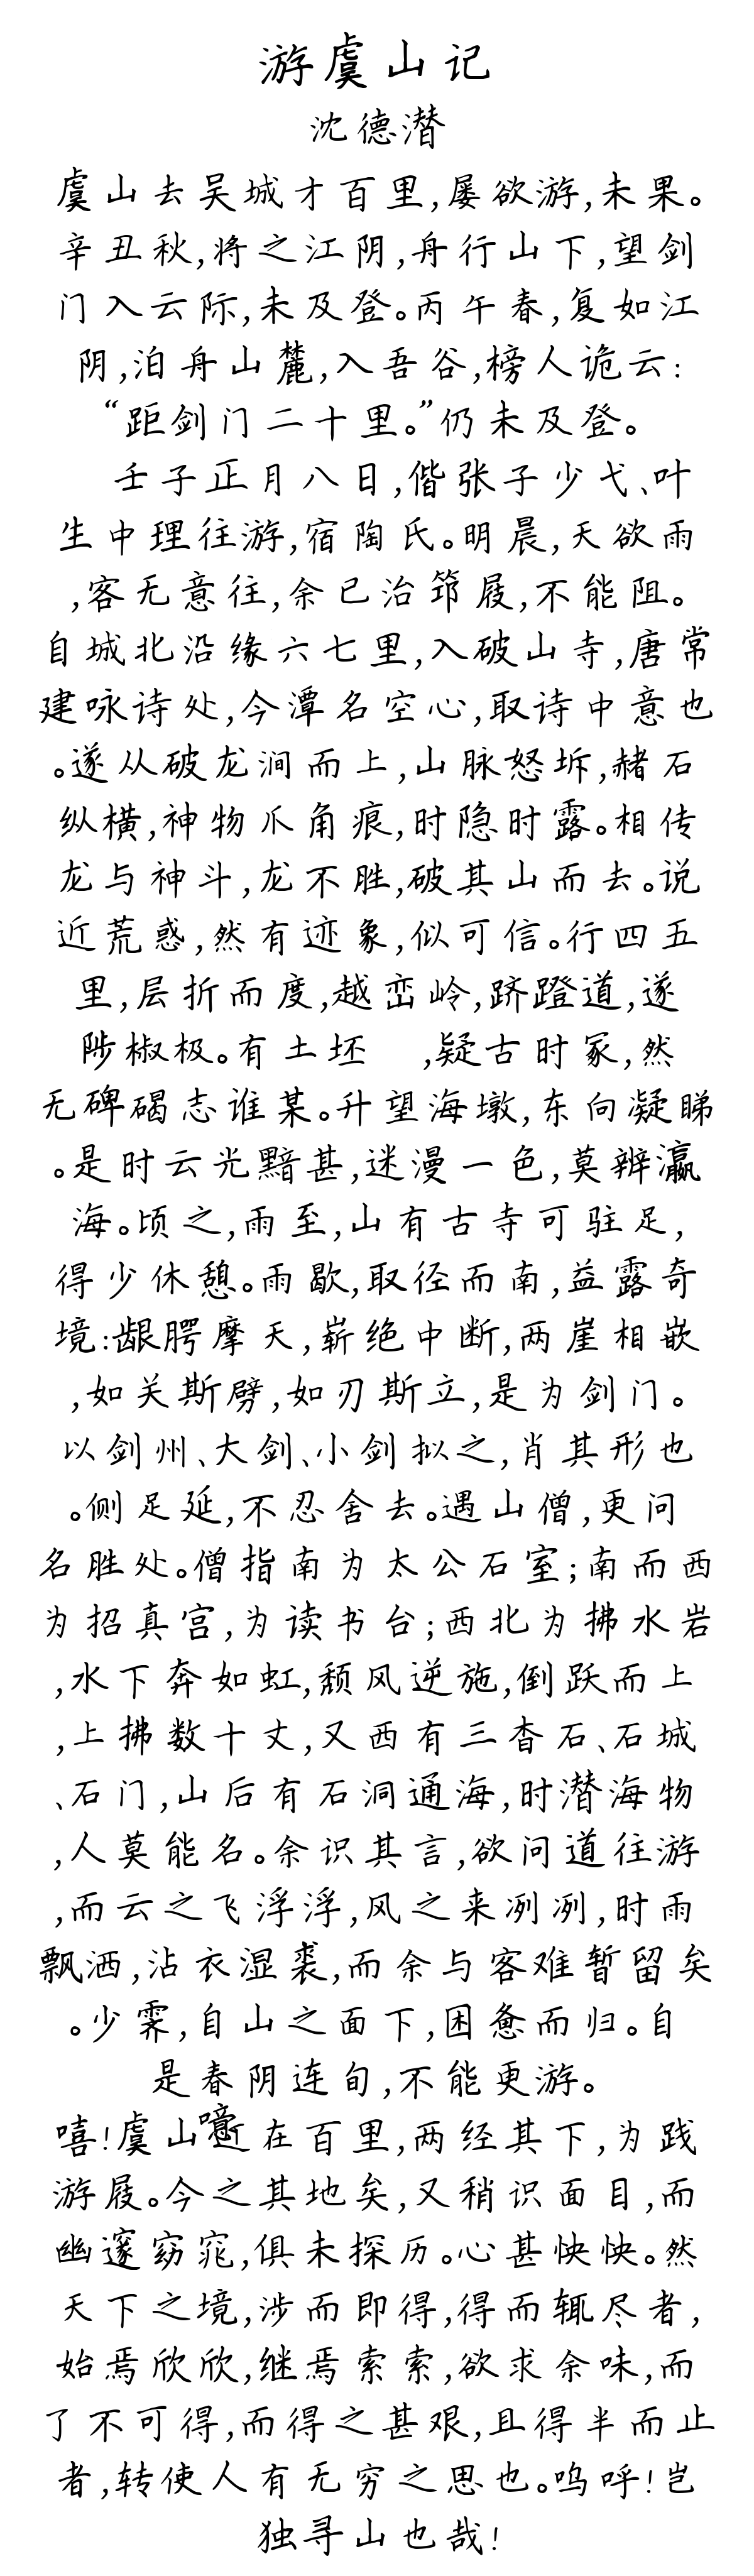 游虞山记
沈德潜
虞山去吴城才百里,屡欲游,未果。
辛丑秋,将之江阴,舟行山下,望剑
门入云际,未及登。丙午春,复如江
阴,泊舟山麓,入吾谷,榜人诡云:
“距剑门二十里。”仍未及登。
壬子正月八日,偕张子少弋、叶
生中理往游,宿陶氏。明晨,天欲雨
,客无意往,余已治筇屐,不能阻。
自城北沿缘六七里,入破山寺,唐常
建咏诗处,今潭名空心,取诗中意也
。遂从破龙涧而上,山脉怒坼,赭石
纵横,神物爪角痕,时隐时露。相传
龙与神斗,龙不胜,破其山而去。说
近荒惑,然有迹象,似可信。行四五
里,层折而度,越峦岭,跻蹬道,遂
陟椒极。有土坯 ,疑古时冢,然
无碑碣志谁某。升望海墩,东向凝睇
。是时云光黯甚,迷漫一色,莫辨瀛
海。顷之,雨至,山有古寺可驻足,
得少休憩。雨歇,取径而南,益露奇
境:龈腭摩天,崭绝中断,两崖相嵌
,如关斯劈,如刃斯立,是为剑门。
以剑州、大剑、小剑拟之,肖其形也
。侧足延,不忍舍去。遇山僧,更问
名胜处。僧指南为太公石室;南而西
为招真宫,为读书台;西北为拂水岩
,水下奔如虹,颓风逆施,倒跃而上
,上拂数十丈,又西有三杳石、石城
、石门,山后有石洞通海,时潜海物
,人莫能名。余识其言,欲问道往游
,而云之飞浮浮,风之来冽冽,时雨
飘洒,沾衣湿裘,而余与客难暂留矣
。少霁,自山之面下,困惫而归。自
是春阴连旬,不能更游。
嘻!虞山噫近在百里,两经其下,为践
游屐。今之其地矣,又稍识面目,而
幽邃窈窕,俱未探历。心甚怏怏。然
天下之境,涉而即得,得而辄尽者,
始焉欣欣,继焉索索,欲求余味,而
了不可得,而得之甚艰,且得半而止
者,转使人有无穷之思也。呜呼!岂
独寻山也哉!